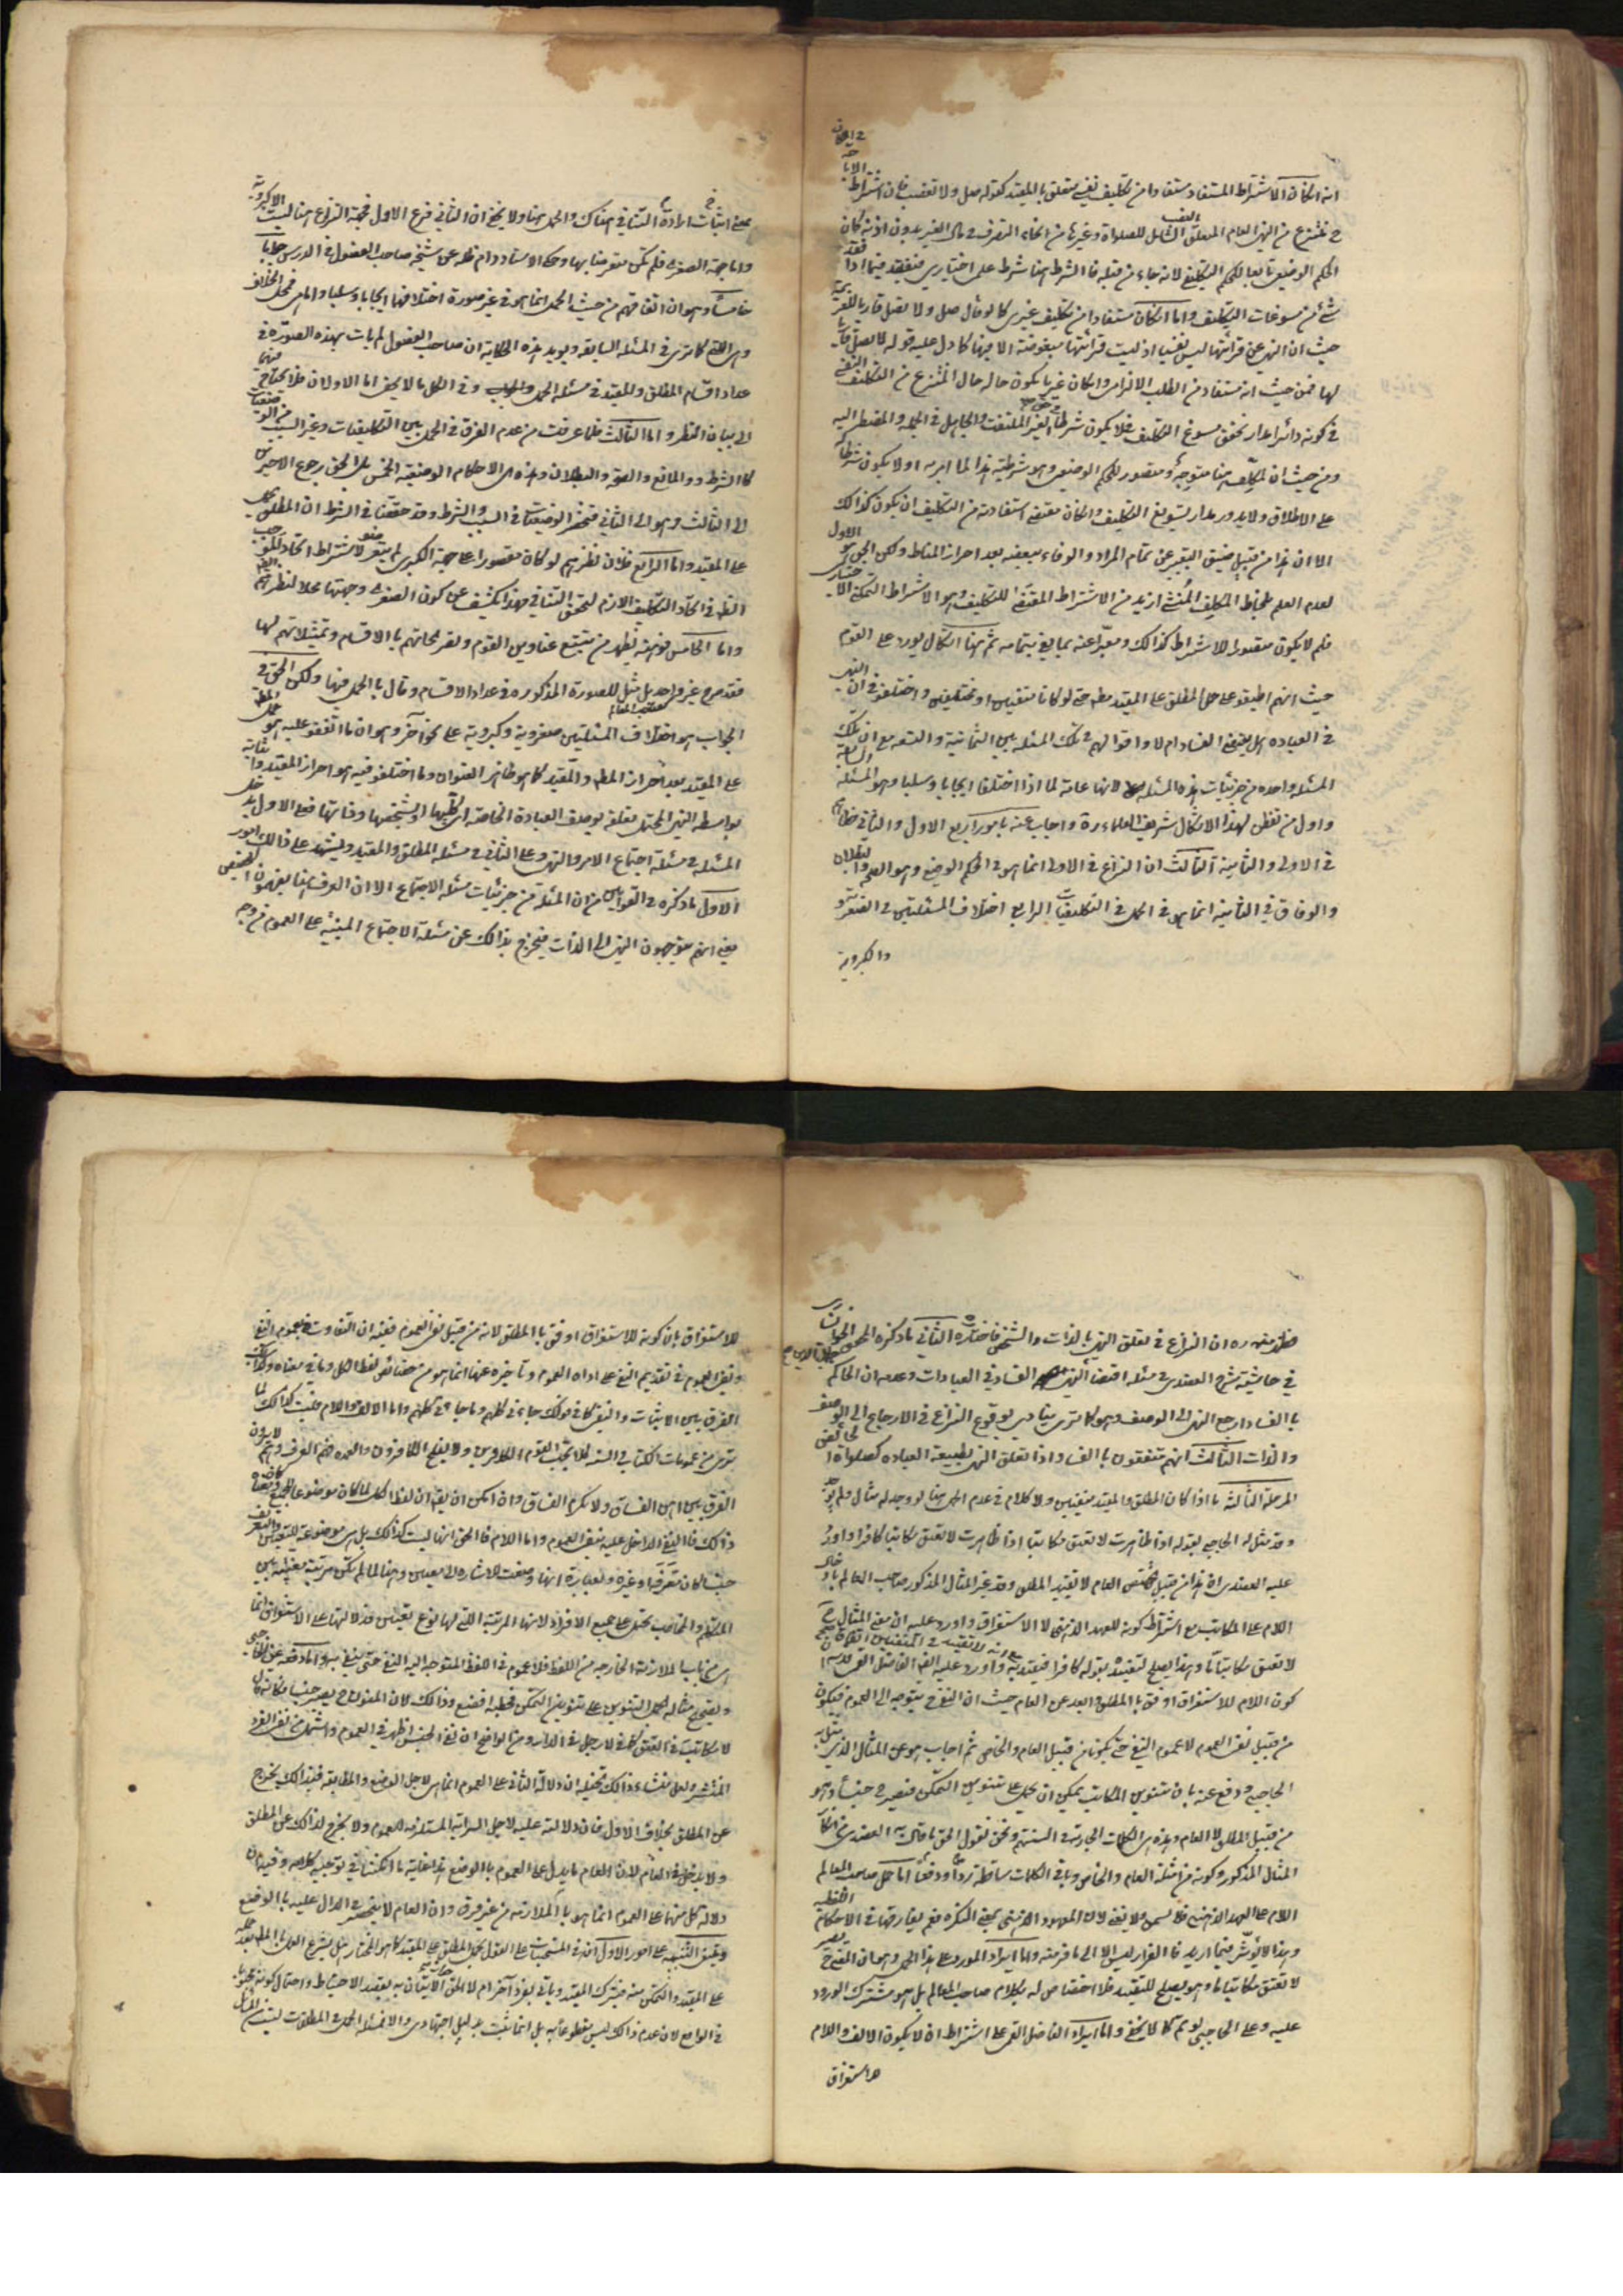 انه ان كان الاشتراط المستفاد مستفادا من تكليف نفسي متعلق بالمقيد كقوله صل ولا تغصب فان اشتراط الاباحة
ح منتزع من النهى العام المتعلق الشامل للصلوة وغيرها من انحاء التصرف في مال الغير بدون اذنه كان
الحكم الوضعي تابعا للحكم التكليفي لانه جاء من قبله فالشرط هنا شرط على اختياري فينتفى فيما اذا فقد
شئ من مسوغات التكليف واما ان كان مستفادا من تكليف غيرى كما لو قال صل ولا تصل
حيث ان النهى عن قرائتها ليس نفسيا اذ ليست قرائتها مبغوضة الا فيها كما دل عليه قوله لا تصل
لها فمن حيث انه مستفاد من الطلب الالزامى وان كان غيريا يكون حاله حال المنتزع من التكليف النفسي
في كونه دائرا مدار تحقق مسوغ التكليف فلا يكون شرطا لغير الملتفت والجاهل في الجملة والمضطر اليه
ومن حيث ان المكلف هنا متوجه ومقصور للحكم الوضعي وهو شرطية هذا لما امر به اولا يكون شرطا
على الاطلاق ولا يدور مدار تسويغ التكليف وان كان مقتضى استفادته من التكليف ان يكون كذلك
الا ان هذا من قبيل ضيق التعبير عن تمام المراد والوفاء ببعضه بعد احراز المناط ولكن الحق هو الاول
لعدم العلم بمناط التكليف المنشئ ازيد من الاشتراط المقتضى للتكليف وهو الاشتراط التمكنى الاختيارى
فلم لا يكون مقصورا للاشتراط كذلك ومعبرا عنه بما يفى بتمامه ثم هنا اشكال يورد على القوم
حيث انهم اطبقوا على حمل المطلق على المقيد مطلقا حتى لو كانا متفقين او مختلفين واختلفوا في ان النهى
في العبادة هل يقتضى الفساد ام لا واقوالهم في تلك المسئلة بين الثمانية والتسعة مع ان تلك
المسئلة واحدة من جزئيات هذه المسئلة لانها عامة لما اذا اختلفا ايجابا وسلبا وهو المسئلة السابقة
واول من تفطن لهذا الاشكال شريف العلماء ره واجاب عنه بامور اربع الاول والثانى
في الاولى والثانية الثالث ان النزاع في الاولى انما هو في الحكم الوضعى وهو الصحة والبطلان
والوفاق في الثانية انما هو في الحمل في التكليفيات الرابع اختلاف المسئلتين في الصغروية
والكبروية
على اثبات ارادة التنافي هناك والحمل هنا ولا يخفى ان الثانى فرع الاول فجهة النزاع هنا ليست الا كبروية
واما جهة الصغرى فلم يكن متعرضا بها وحكى الاستاد دام ظله عن شيخه صاحب الفصول في الدرس جوابا
خامسا وهو ان اتفاقهم من حيث الحمل انما هو في غير صورة اختلافهما ايجابا وسلبا واما هى فمحل الخلاف
وهى التى كما ترى في المسئلة السابقة ويؤيد هذه الحكاية ان صاحب الفصول لم يات بهذه الصورة في
عداد اقسام المطلق والمقيد في مسئلة الحمل وفي الكل ما لا يخفى اما الاولان فلا يحتاج فيهما
الى بيان النظر واما الثالث فلما عرفت من عدم الفرق في الحمل بين التكليفيات وغير السبب من الوضعيات
كالشرط والمانع والصحة والبطلان وهذه هى الاحكام الوضعية الخمس بل الحق رجوع الاخيرين
الى الثالث وهو الى الثانى فتنحصر الوضعيات في السبب والشرط وقد حققنا في الشرط ان المطلق يحمل
على المقيد واما الرابع فلان نظرهم لو كان مقصورا على جهة الكبرى لم يتعرضوا لاشتراط اتحاد الموجب
الظ في اتحاد التكليف اللازم لتحقق التنافي فهذا يكشف عن كون الصغرى وجهتها محلا لنظرهم ايضا
واما الخامس فوهنه يظهر من تتبع عناوين القوم وتصريحاتهم بالاقسام وتمثيلاتهم لها
فقد صرح غير واحد بل مثل للصورة المذكورة في عداد الاقسام وقال بالحمل فيها ولكن الحق في
الجواب هو اختلاف المسئلتين صغروية وكبروية على نحو آخر وهو ان ما اتفقوا عليه هو حمل المطلق
على المقيد بعد احراز المطلق والمقيد كما هو ظاهر العنوان وما اختلفوا فيه هو احراز المقيد واثباته
بواسطة النهى المحتمل تعلقه بوصف العبادة الخاصة اى بكليها او بشخصها وذاتها فعلى الاول يدخل
المسئلة في مسئلة اجتماع الامر والنهى وعلى الثانى في مسئلة المطلق والمقيد ويشهد على ذلك امور
الاول ما ذكره في القوانين من ان المسئلة من جزئيات مسئلة الاجتماع الا ان العرف هنا يفهمون التخصيص
يعنى انهم يوجهون النهى الى الذات فيخرج بذلك عن مسئلة الاجتماع المبنية على العموم من وجه
فظهر منه ره ان النزاع في تعلق النهى بالذات والشخص فاختاره الثانى ما ذكره المحقق الخوانسارى
في حاشيته شرح العضدى في مسئلة اقتضاء النهى الفساد في العبادات وعدمه ان الحاكم
بالفساد ارجع النهى الى الوصف وهو كما ترى ينادى بوقوع النزاع في الارجاع الى الوصف
والذات الثالث انهم متفقون بالفساد اذا تعلق النهى بطبيعة العبادة كصلوة الحائض
المرحلة الثالثة ما اذا كان المطلق والمقيد منفيين ولا كلام في عدم الحمل هنا لو وجد له مثال ولم يوجد
وقد مثل له الحاجبى بقوله اذا ظاهرت لا تعتق مكاتبا اذا ظاهرت لا تعتق مكاتبا كافرا واورد
عليه العضدى انه هذا من قبيل تخصيص العام لا تقييد المطلق وقد غير المثال المذكور صاحب المعالم بادخال
اللام على المكاتب مع اشتراط كونه للعهد الذهنى لا الاستغراق واورد عليه ان معنى المثال ح
لا تعتق مكاتبا ما وهذا يصلح لتقييده بقوله كافرا فيتقيد به واورد عليه
كون اللام للاستغراق اوفق بالمطلق وابعد عن العام حيث ان النفى ح يتوجه الى العموم فيكون
من قبيل نفى العموم لا عموم النفى حتى يكونا من قبيل العام والخاص ثم اجاب هو عن المثال الذى مثل به
الحاجبى ودفع عنه بان تنوين المكاتب يمكن ان يحمل على تنوين التمكن فيصير ح جنسا وهو
من قبيل المطلق لا العام وهذه هى الكلمات الجارية في السنتهم ونحن نقول الحق ما قال به العضدى من انكار
المثال المذكور وكونه من امثلة العام والخاص وباقى الكلمات ساقطة ردا ودفعا اما حمل صاحب المعالم
اللام على العهد الذهنى فلا يسمن ولا يغنى لان المعهود الذهنى بمعنى النكرة فهو يعارضها في الاحكام اللفظية
وهذا لا يؤثر فيما اريد فالفرار ليس الا الى ما فر منه واما ايراد المورد على هذا الحمل وهو ان المعنى ح يصير
لا تعتق مكاتبا ما وهو يصلح للتقييد فلا اختصاص له بكلام صاحب المعالم بل هو مشترك الورود
عليه وعلى الحاجبى لو تم كما لا يخفى واما ايراد الفاضل القمى على اشتراط ان لا يكون الالف واللام
للاستغراق
للاستغراق بان كونه للاستغراق اوفق بالمطلق لانه من قبيل نفى العموم ففيه ان التفاوت في عموم النفى
ونفى العموم في تقديم النفى على اداة العموم وتأخيره عنها انما هو من خصائص لفظ الكل وما في معناه وكذلك
الفرق بين الاثبات والنفى كما في قولك جاءنى كلهم وما جاءنى كلهم واما الالف واللام فليست كذلك لما
ترى من عمومات الكتاب والسنة كلا يحب القوم الكافرين ولا يفلح الكافرون والعمدة فهم العرف وهم لا يرون
الفرق بين اهن الفساق ولا تكرم الفساق وان امكن ان يقال ان لفظ الكل لما كان موضوعا للجميع
ذلك فالنفى الداخل عليه ينفى العموم واما اللام فالحق انها ليست كذلك بل هى موضوعة للتعيين والتعريف
حيثما كان معرفا وغيره وبعبارة انها وضعت للاشارة الى معين وهنا لما لم يكن مرتبة معينة بين
المتكلم والمخاطب يحمل على جميع الافراد لانها المرتبة التى لها نوع تعيين فدلالتها على الاستغراق انما
هى من باب الملازمة الخارجية من اللفظ فلا عموم في اللفظ المتوجه اليه النفى حتى ينفى به واما دفعه عن الحاجبى
وتصحيح مثاله بحمل التنوين على تنوين التمكن فخطبه افضع وذلك لان المنون ح يصير جنسا فكانه قال
لا مكاتب في العتق كما في لا رجل في الدار ومن الواضح ان نفى الجنس اظهر في العموم واشمل من نفى الفرد
المنتشر ولعل منشاء ذلك تخيله ان دلالة الثانى على العموم انما هى لاجل الوضع والمطابقة فبذلك يخرج
عن المطلق بخلاف الاول فان دلالته عليه لاجل السراية المستلزمة للعموم ولا يخرج لذلك عن المطلق
ولا يدخل في العام لان العام ما يدل على العموم بالوضع هذا غاية ما امكننا في توجيه كلامه وفيه ان
دلالة كل منهما على العموم انما هو بالملازمة من غير فرق وان العام لا ينحصر في الدال عليه بالوضع
وينبغى التنبيه على امور الاول انه في المستحبات على القول بحمل المطلق على المقيد كما هو المختار هل يشرع العمل بالمطلق بعد حمله
على المقيد والتمكن منه فيترك المقيد وياتى بفرد آخر ام لا الحق الاتيان به بقصد الاحتياط واحتمال كونه محبوبا
في الواقع لان عدم ذلك ليس مقطوعا به بل انما يثبت بدليل اجتهادى